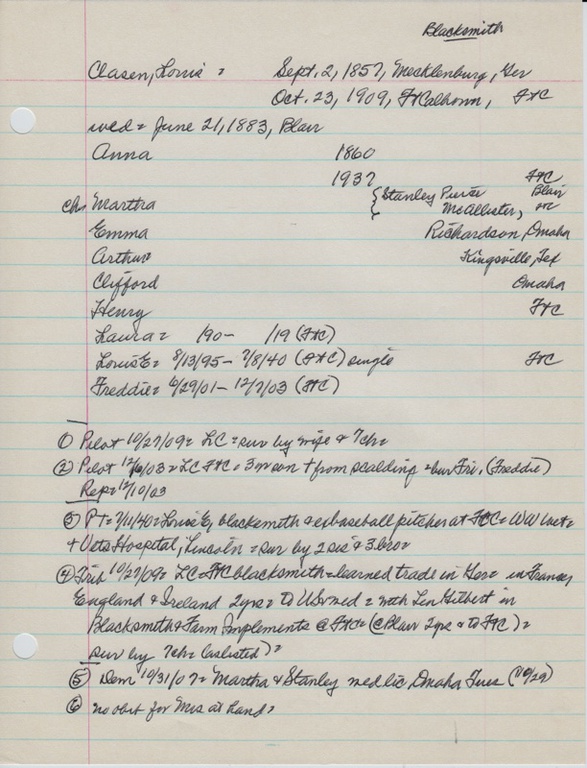 Blacksmith
Clasen, Louis = Sept. 2, 1857, Mecklenburg, Ger
Oct. 23, 1909, FtCalhoun, FtC
wed = June 21, 1883, Blair
Anna 1860
1937 FtC
ch, Martha {Stanley Pierse Blair
McAllister, FtC
Emma Richardson, Omaha
Arthur Kingsville, Tex
Clifford Omaha
Henry FtC
Laura = /90- /19 (FtC)
Louis E = 8/13/95 - 7/8/40 (FtC) single FtC
Freddie = 6/29/01 - 12/7/03 (FtC)
① Pilot 10/27/09 = LC = sur by wife & 7ch =
② Pilot 12/ /03 = LC FtC = 3 son + from scalding = bur Fri. (Freddie)
Rep = 12/10/03
③ PT = 7/11/40 = Louis E, blacksmith & exbaseball pitcher at FtC = WW vet =
+ Vets Hospital, Lincoln = sur by 2 sis & 3 bro =
④ Trib 10/27/09 = LC = FtC blacksmith = learned trade in Ger = in France,
England & Ireland 2yrs = to US = wed = with Len Gilbert in
Blacksmith & Farm Implements @ FtC = (@ Blair 2yrs & to FtC) =
sur by 7ch = (as listed) =
⑤ Dem 10/31/07 = Martha & Stanley wed lic, Omaha Tues (10/29)
⑥ no obit for Mrs at hand =